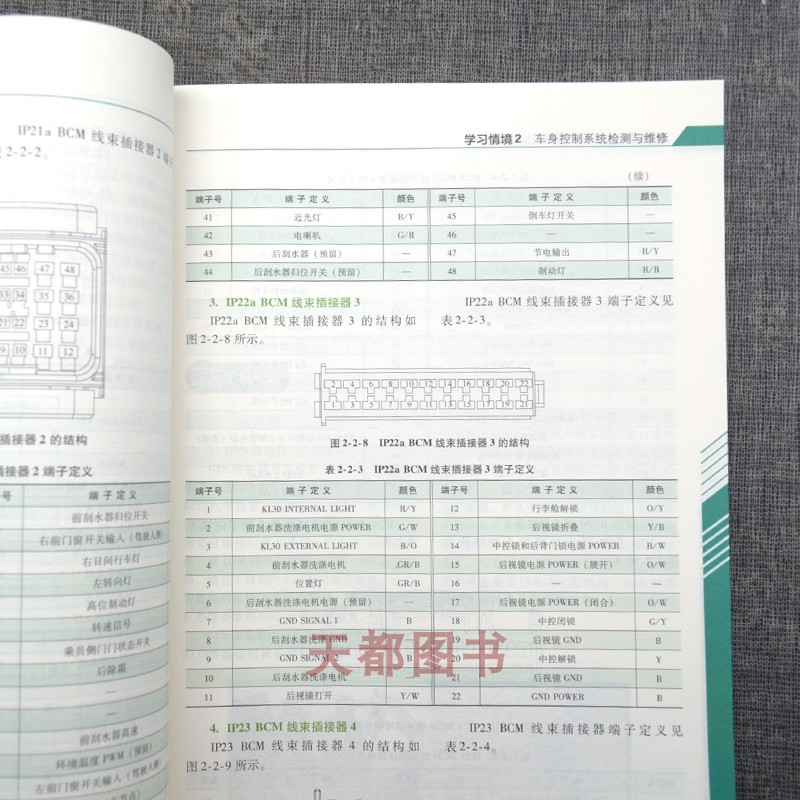 IP21a BCM 线束插接器 2 端子
表 2-2-2。
45 46 47 48
33 34 35 36
21 22 23 24
9 10 11 12
插接器 2 的结构
插接器 2 端子定义
号 端子定义
前刮水器归位开关
右前门窗开关输入（驾驶人侧）
右日间行车灯
左转向灯
高位制动灯
转速信号
乘员侧门门状态开关
后除霜
—
—
前刮水器高速
环境温度 PWM（预留）
左前门窗开关输入（驾驶人侧）
学习情境 2 车身控制系统检测与维修
（续）
端子号 端子定义 颜色 端子号 端子定义 颜色
41 近光灯 B/Y 45 倒车灯开关 —
42 电喇叭 G/R 46 — —
43 后刮水器（预留） — 47 节电输出 R/Y
44 后刮水器归位开关（预留） — 48 制动灯 R/B
3. IP22a BCM 线束插接器 3
IP22a BCM 线束插接器 3 的结构如
图 2-2-8 所示。
IP22a BCM 线束插接器 3 端子定义见
表 2-2-3。
2 4 6 8 10 12 14 16 18 20 22
1 3 5 7 9 11 13 15 17 19 21
图 2-2-8 IP22a BCM 线束插接器 3 的结构
表 2-2-3 IP22a BCM 线束插接器 3 端子定义
端子号 端子定义 颜色 端子号 端子定义 颜色
1 KL30 INTERNAL LIGHT R/Y 12 行李舱解锁 O/Y
2 前刮水器洗涤电机电源 POWER G/W 13 后视镜折叠 Y/B
3 KL30 EXTERNAL LIGHT B/O 14 中控锁和后背门锁电源 POWER R/W
4 前刮水器洗涤电机 GR/B 15 后视镜电源 POWER（展开） O/W
5 位置灯 GR/B 16 — —
6 后刮水器洗涤电机电源（预留） — 17 后视镜电源 POWER（闭合） O/W
7 GND SIGNAL 1 B 18 中控闭锁 G/Y
8 后刮水器洗涤 GND 19 后视镜 GND B
9 GND SIGNAL 2 B 20 中控解锁 Y
10 后刮水器洗涤电机 21 后视镜 GND B
11 后视镜打开 Y/W 22 GND POWER B
天都图书
4. IP23 BCM 线束插接器 4
IP23 BCM 线束插接器 4 的结构如
图 2-2-9 所示。
IP23 BCM 线束插接器端子定义见
表 2-2-4。